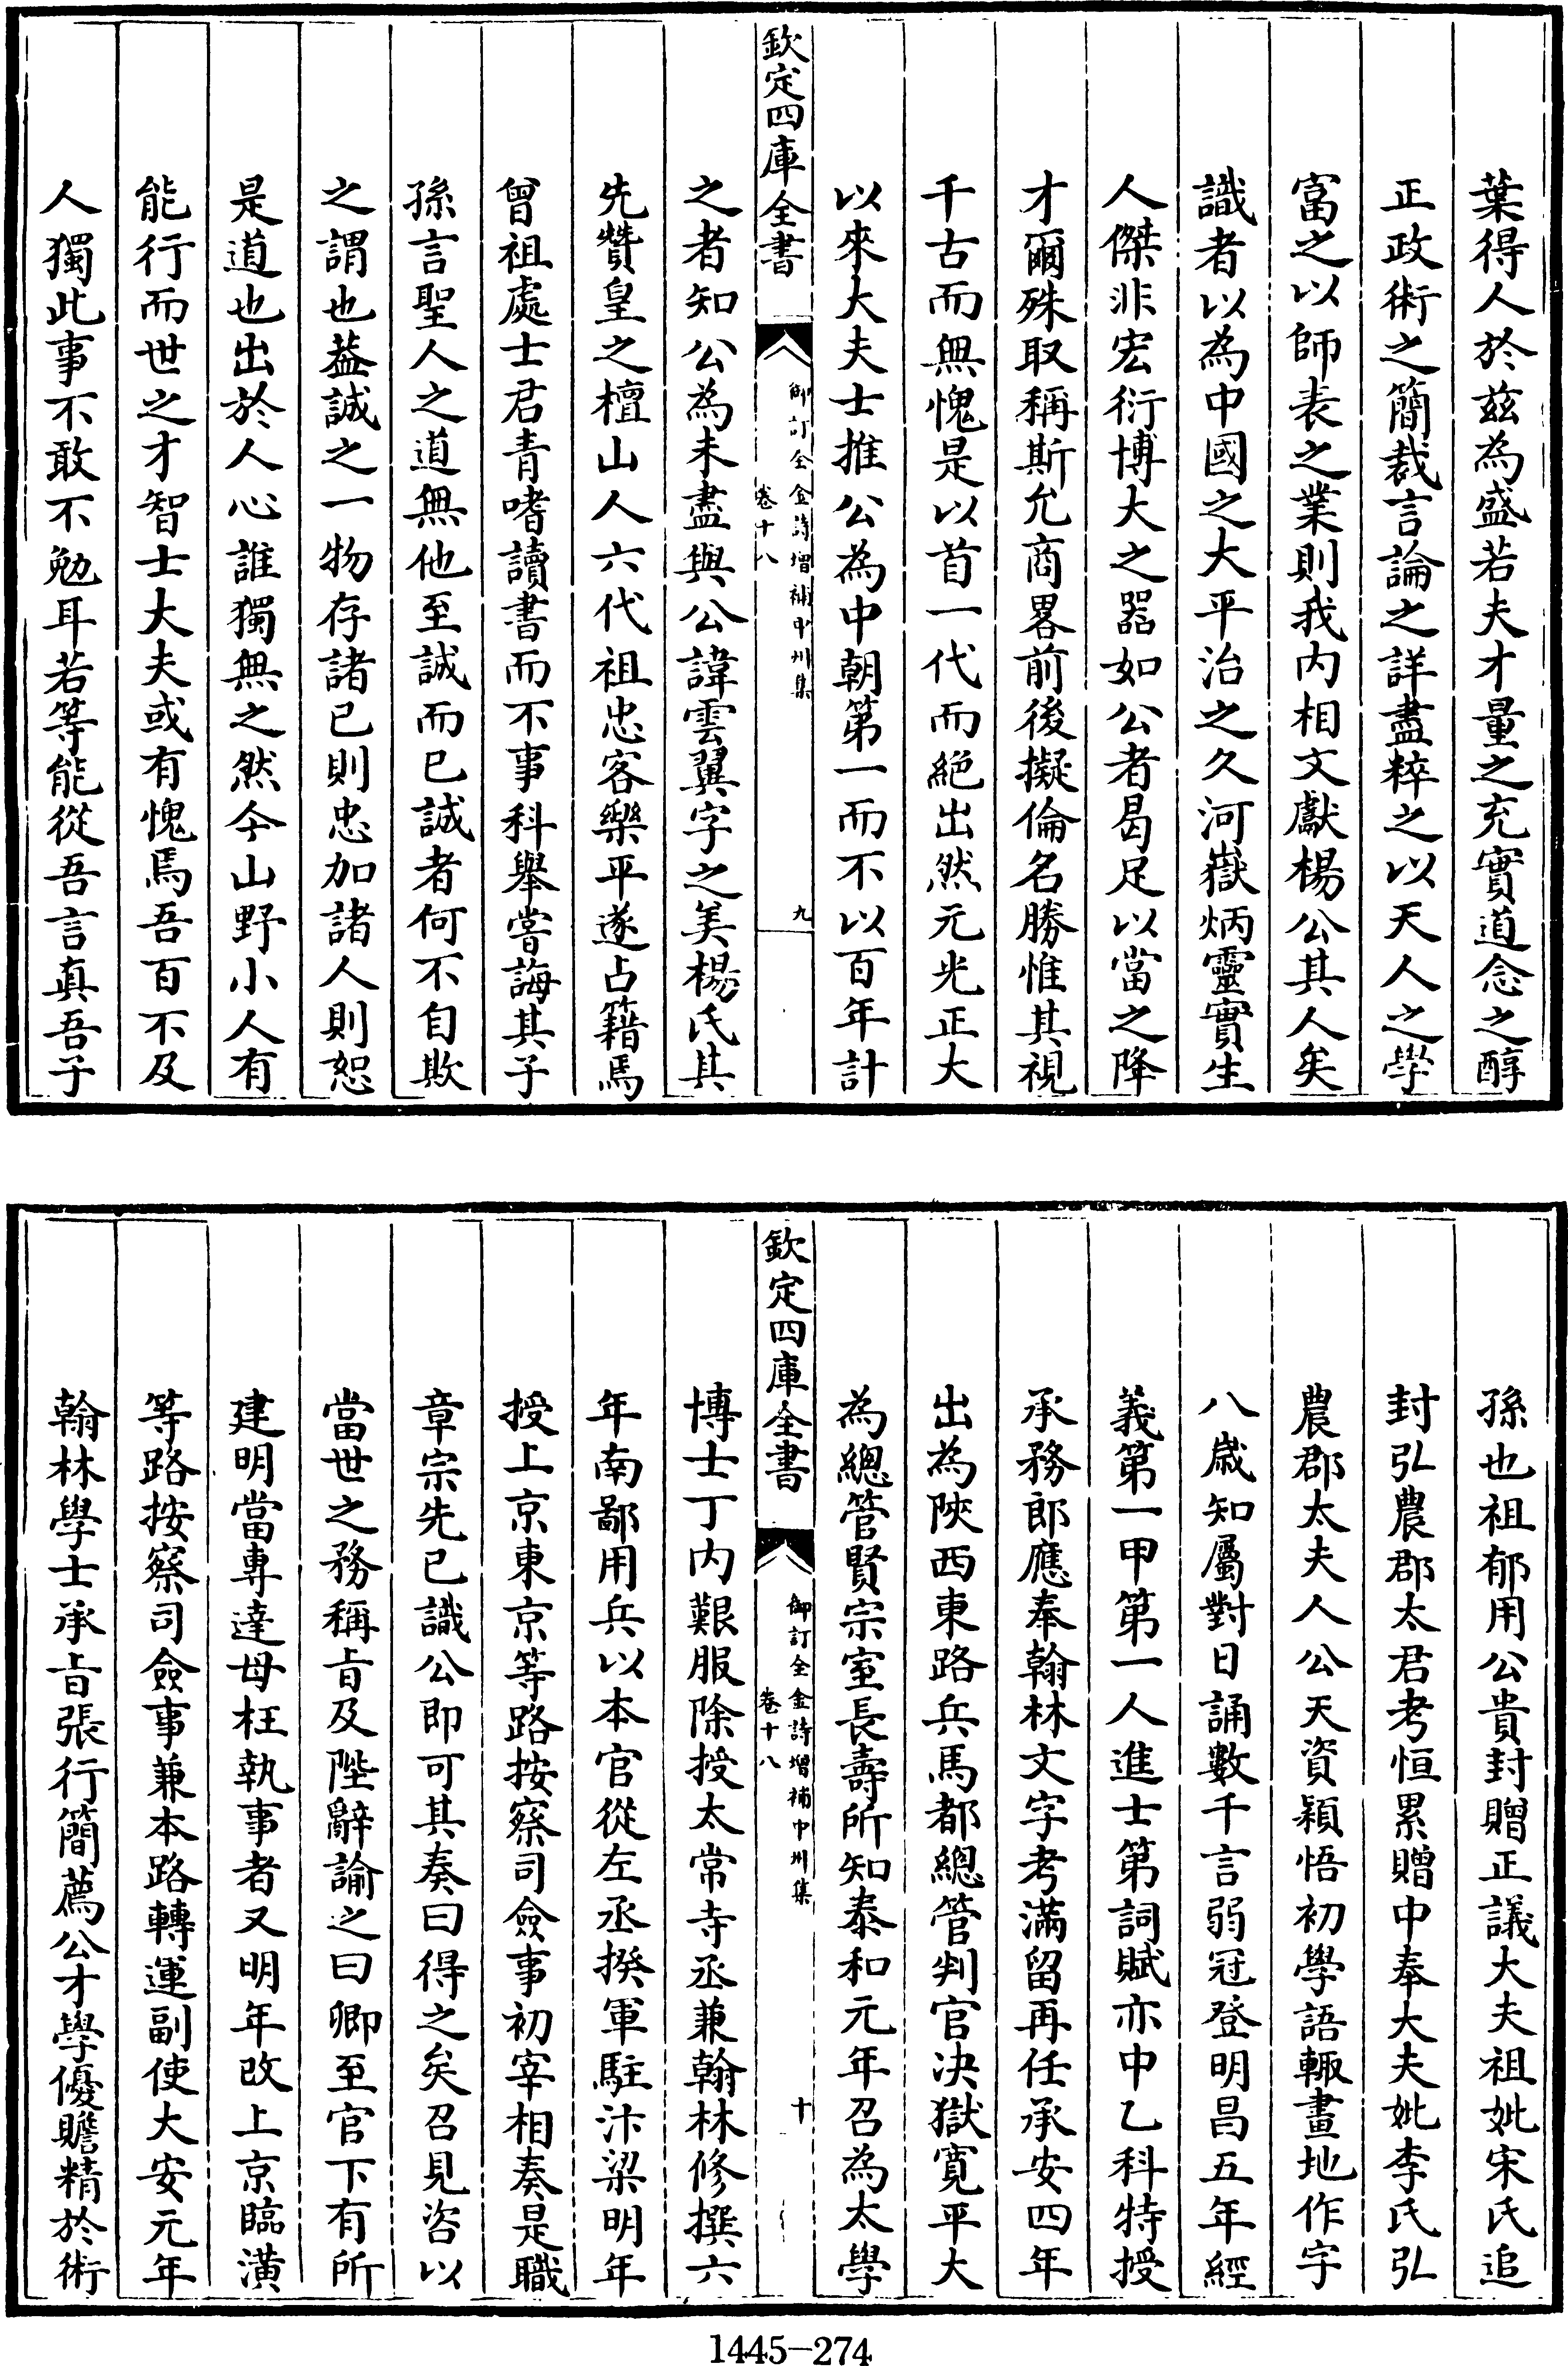 葉得人於兹為盛若夫才量之充實道念之醇
正政術之簡裁言論之詳盡粹之以天人之學
富之以師表之業則我内相文獻楊公其人矣
識者以為中國之大平治之久河嶽炳靈實生
人傑非宏衍博大之器如公者曷足以當之降
才爾殊取稱斯允商畧前後擬倫名勝惟其視
千古而無愧是以首一代而絶出然元光正大
以來大夫士推公為中朝第一而不以百年計
欽定四庫全書
御訂全金詩增補中州集
卷十八
九
之者知公為未盡與公諱雲翼字之美楊氏其
先贊皇之檀山人六代祖忠客樂平遂占籍焉
曾祖處士君青嗜讀書而不事科舉嘗誨其子
孫言聖人之道無他至誠而已誠者何不自欺
之謂也葢誠之一物存諸已則忠加諸人則恕
是道也出於人心誰獨無之然今山野小人有
能行而世之才智士大夫或有愧焉吾百不及
人獨此事不敢不勉耳若等能從吾言真吾子
孫也祖郁用公貴封贈正議大夫祖妣宋氏追
封弘農郡太君考恒累贈中奉大夫妣李氏弘
農郡太夫人公天資穎悟初學語輙畫地作字
八歲知屬對日誦數千言弱冠登明昌五年經
義第一甲第一人進士第詞賦亦中乙科特授
承務郎應奉翰林文字考滿留再任承安四年
出為陜西東路兵馬都總管判官决獄寛平大
為總管賢宗室長壽所知泰和元年召為太學
欽定四庫全書
御訂全金詩增補中州集
卷十八
十
博士丁内艱服除授太常寺丞兼翰林修撰六
年南鄙用兵以本官從左丞揆軍駐汴梁明年
授上京東京等路按察司僉事初宰相奏是職
章宗先已識公即可其奏曰得之矣召見咨以
當世之務稱㫖及陛辭諭之曰卿至官下有所
建明當專達毋枉執事者又明年改上京臨潢
等路按察司僉事兼本路轉運副使大安元年
翰林學士承㫖張行簡薦公才學優贍精於術
1445-274